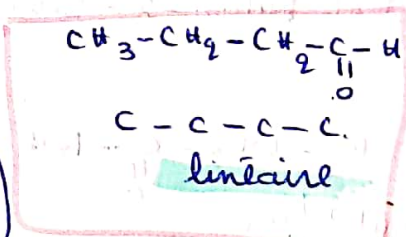 CH3-CH2-CH2-C-H
||
O
C-C-C-C.
linéaire